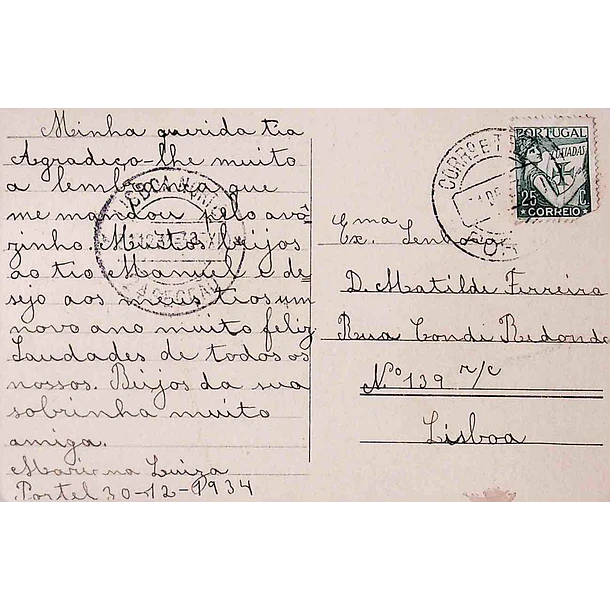 Minha querida tia
Agradeço-lhe muito
a lembrança que
me mandou pelo avô-
zinho. Muitos beijos
ao tio Manuel e de
sejo aos meus tios um
novo ano muito feliz
Saudades de todos os
nossos. Beijos da sua
sobrinha muito
amiga.
Marianna Luiza
Portel 30-12-1934
PORTUGAL
LUSIADAS
25 C.
CORREIO
CORREIO E T
Ema
Ex. Senhora
D. Matilde Ferreira
Rua Conde Redondo
Nº 139 r/c
Lisboa
LISBOA